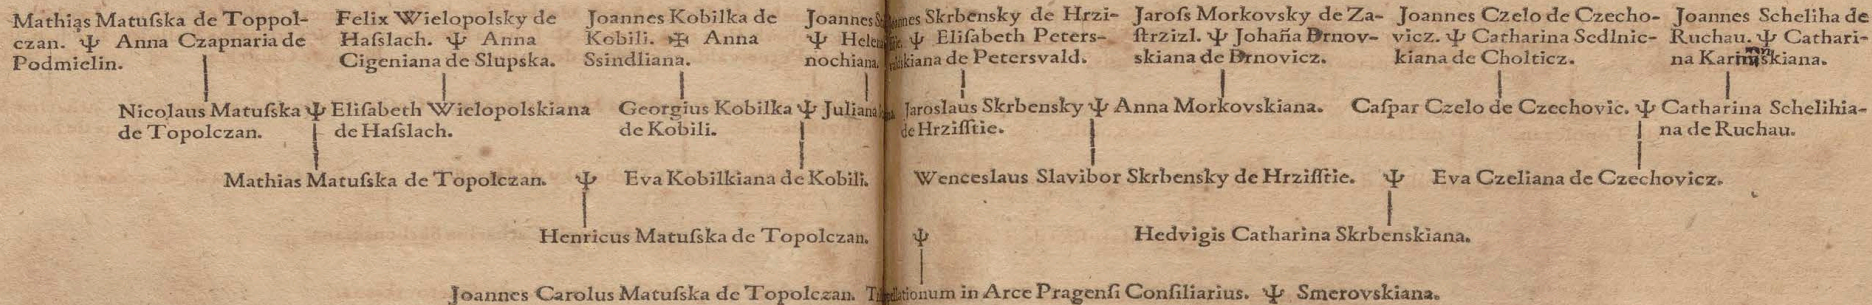 Mathias Matuſska de Toppol-
czan. Ψ Anna Czapnaria de
Podmielin.
Felix Wielopolsky de
Haſslach. Ψ Anna
Cigeniana de Slupska.
Joannes Kobilka de
Kobili. ✠ Anna
Ssindliana.
Joannes
Ψ
nochiana.
Skrbensky de Hrzi-
Ψ Eliſabeth Peters-
kiana de Petersvald.
Jaroſs Morkovsky de Za-
ſtrzizl. Ψ Johaña Brnov-
skiana de Brnovicz.
Joannes Czelo de Czecho-
vicz. Ψ Catharina Sedlnic-
kiana de Cholticz.
Joannes Scheliha de
Ruchau. Ψ Cathari-
na
Nicolaus Matuſska Ψ Eliſabeth Wielopolskiana
de Topolczan. de Haſslach.
Georgius Kobilka Ψ Juliana
de Kobili.
Jaroslaus Skrbensky Ψ Anna Morkovskiana.
de Hrziſſtie.
Caſpar Czelo de Czechovic. Ψ Catharina Schelihia-
na de Ruchau.
Mathias Matuſska de Topolczan. Ψ Eva Kobilkiana de Kobili.
Wenceslaus Slavibor Skrbensky de Hrziſſtie. Ψ Eva Czeliana de Czechovicz.
Henricus Matuſska de Topolczan. Ψ Hedvigis Catharina Skrbenskiana.
Joannes Carolus Matuſska de Topolczan. in Arce Pragenſi Conſiliarius. Ψ Smerovskiana.